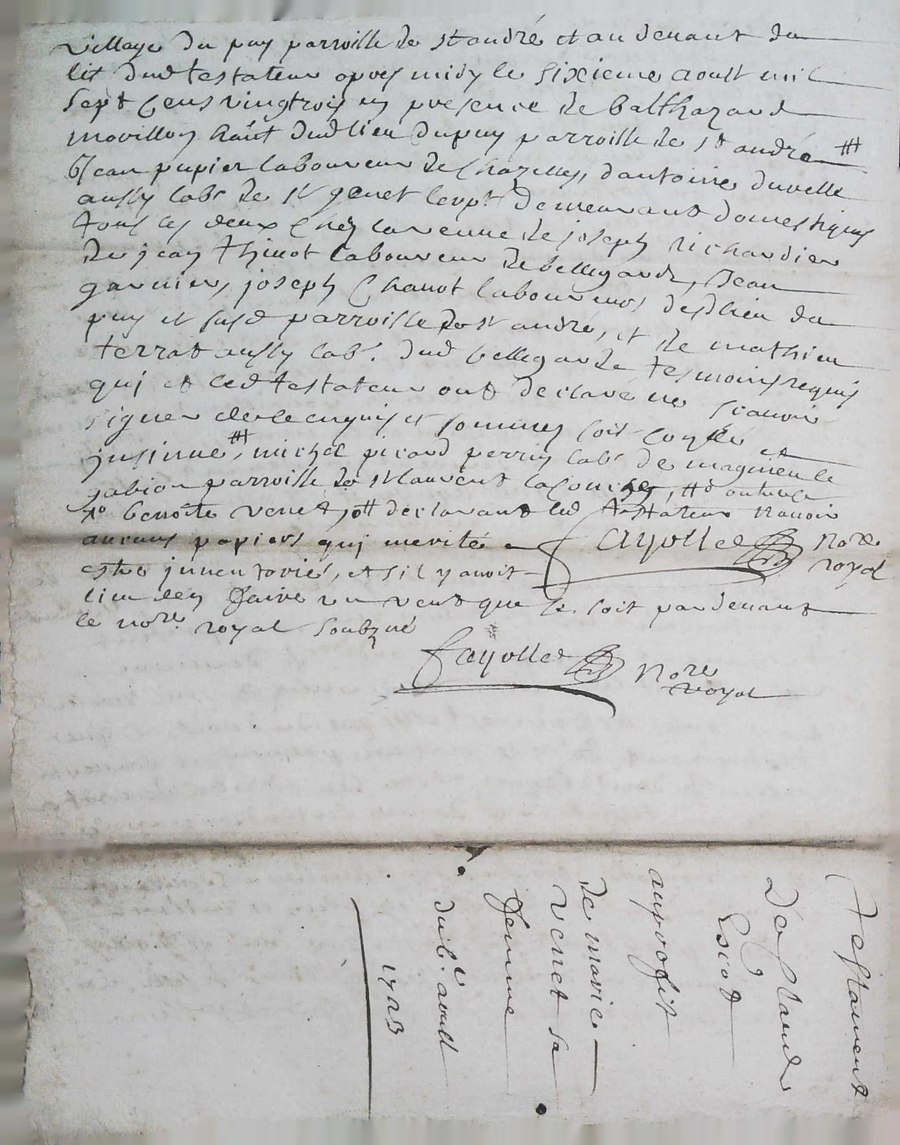 village du puy parroisse de st andré et au devant du
lit dud testateur apres midy le sixieme aoust mil
sept cens vingtrois en presence de balthazard
movillon habt dud lieu du puy parroisse de st andré #
jean papier laboureur de chazelles, d'antoine duvelle
aussy labr de st genet demeurant domestiques
tous les deux chez la veuve de joseph richardier
de jean thinot laboureur de bellegarde, jean
garnier, joseph chanot laboureurs desd lieu du
puy et susd parroisse de st andré, et de mathieu
terrat aussy labr. dud bellegarde tesmoins requis
qui et led testateur ont declaré ne scavoir
signer de ce enquis et sommes soit et
insinué # michel picard perrin labr de
gabion parroisse de st laurent la #
benoite venet declarant led testateur n'avoir
aucuns papiers qui merite
estre inventorié, et s'il y avoit
lieu den faire un veut que le soit pardevant
le nore. royal soubzné
fayolle nore royal
fayolle nore royal
Testament
au profit
de marie
venet sa
femme
du 6e aoust
1723